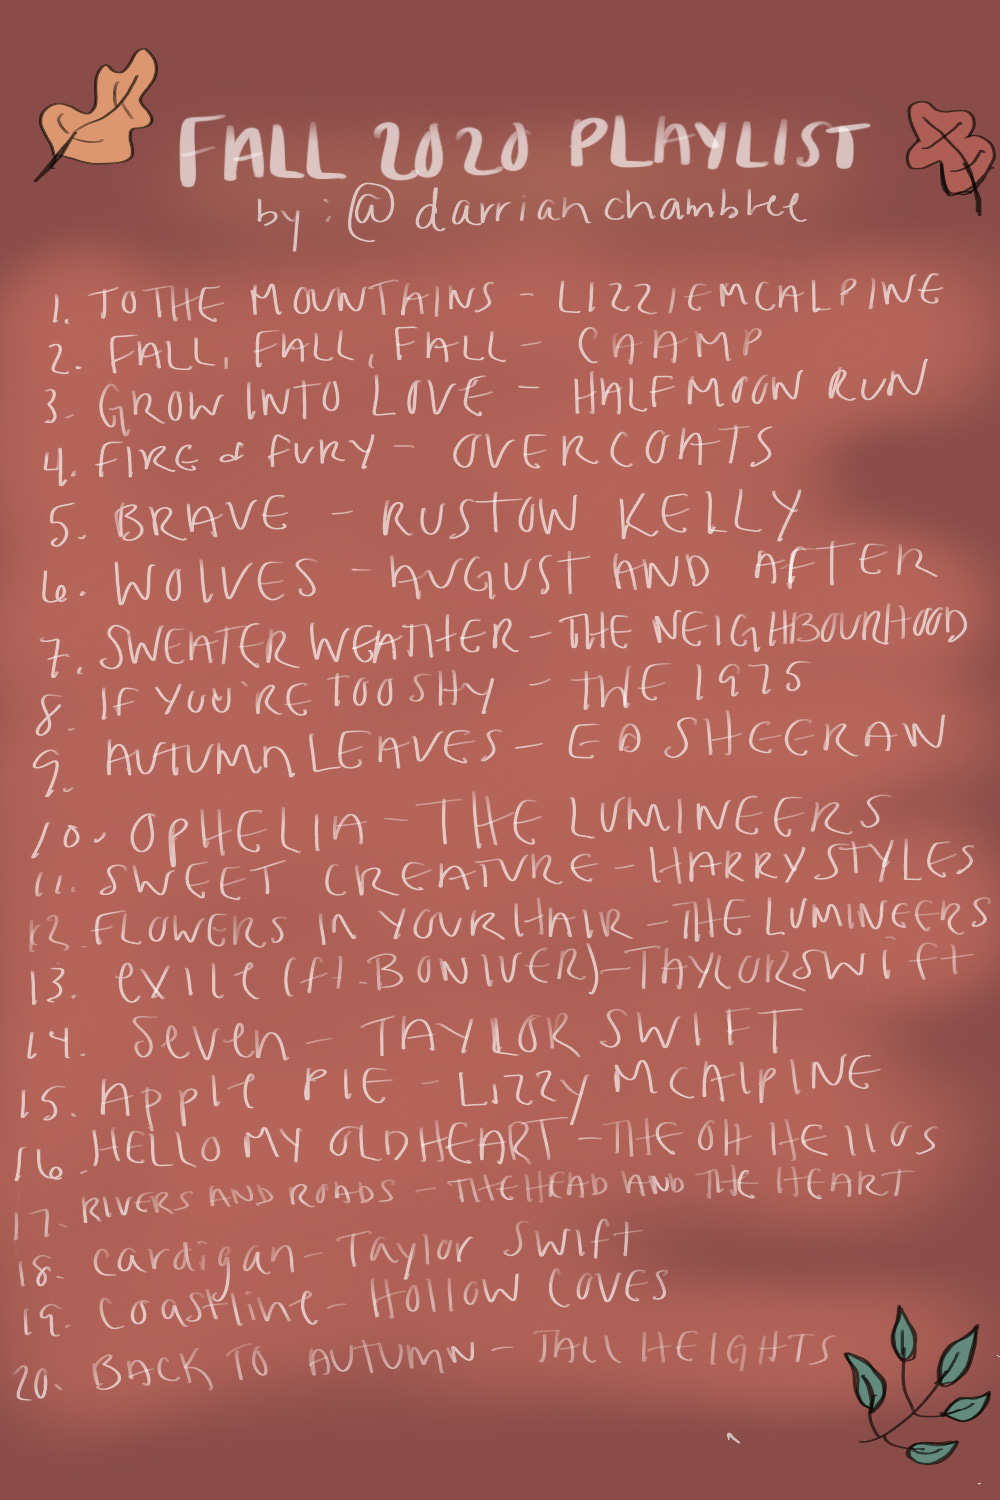 FALL 2020 PLAYLIST
by: @darrianchamblee
1. TO THE MOUNTAINS - LIZZIE MCALPINE
2. FALL, FALL, FALL - CAAMP
3. GROW INTO LOVE - HALF MOON RUN
4. FIRE & FURY - OVERCOATS
5. BRAVE - RUSTON KELLY
6. WOLVES - AUGUST AND AFTER
7. SWEATER WEATHER - THE NEIGHBOURHOOD
8. IF YOU'RE TOO SHY - THE 1975
9. AUTUMN LEAVES - ED SHEERAN
10. OPHELIA - THE LUMINEERS
11. SWEET CREATURE - HARRY STYLES
12. FLOWERS IN YOUR HAIR - THE LUMINEERS
13. exile (ft. BON IVER) - TAYLOR SWIft
14. Seven - TAYLOR SWIFT
15. Apple PIE - LIZZY MCALPINE
16. HELLO MY OLD HEART - THE OH HELLOS
17. RIVERS AND ROADS - THE HEAD AND THE HEART
18. cardigan - Taylor Swift
19. Coastline - Hollow COVES
20. BACK TO AUTUMN - TALL HEIGHTS